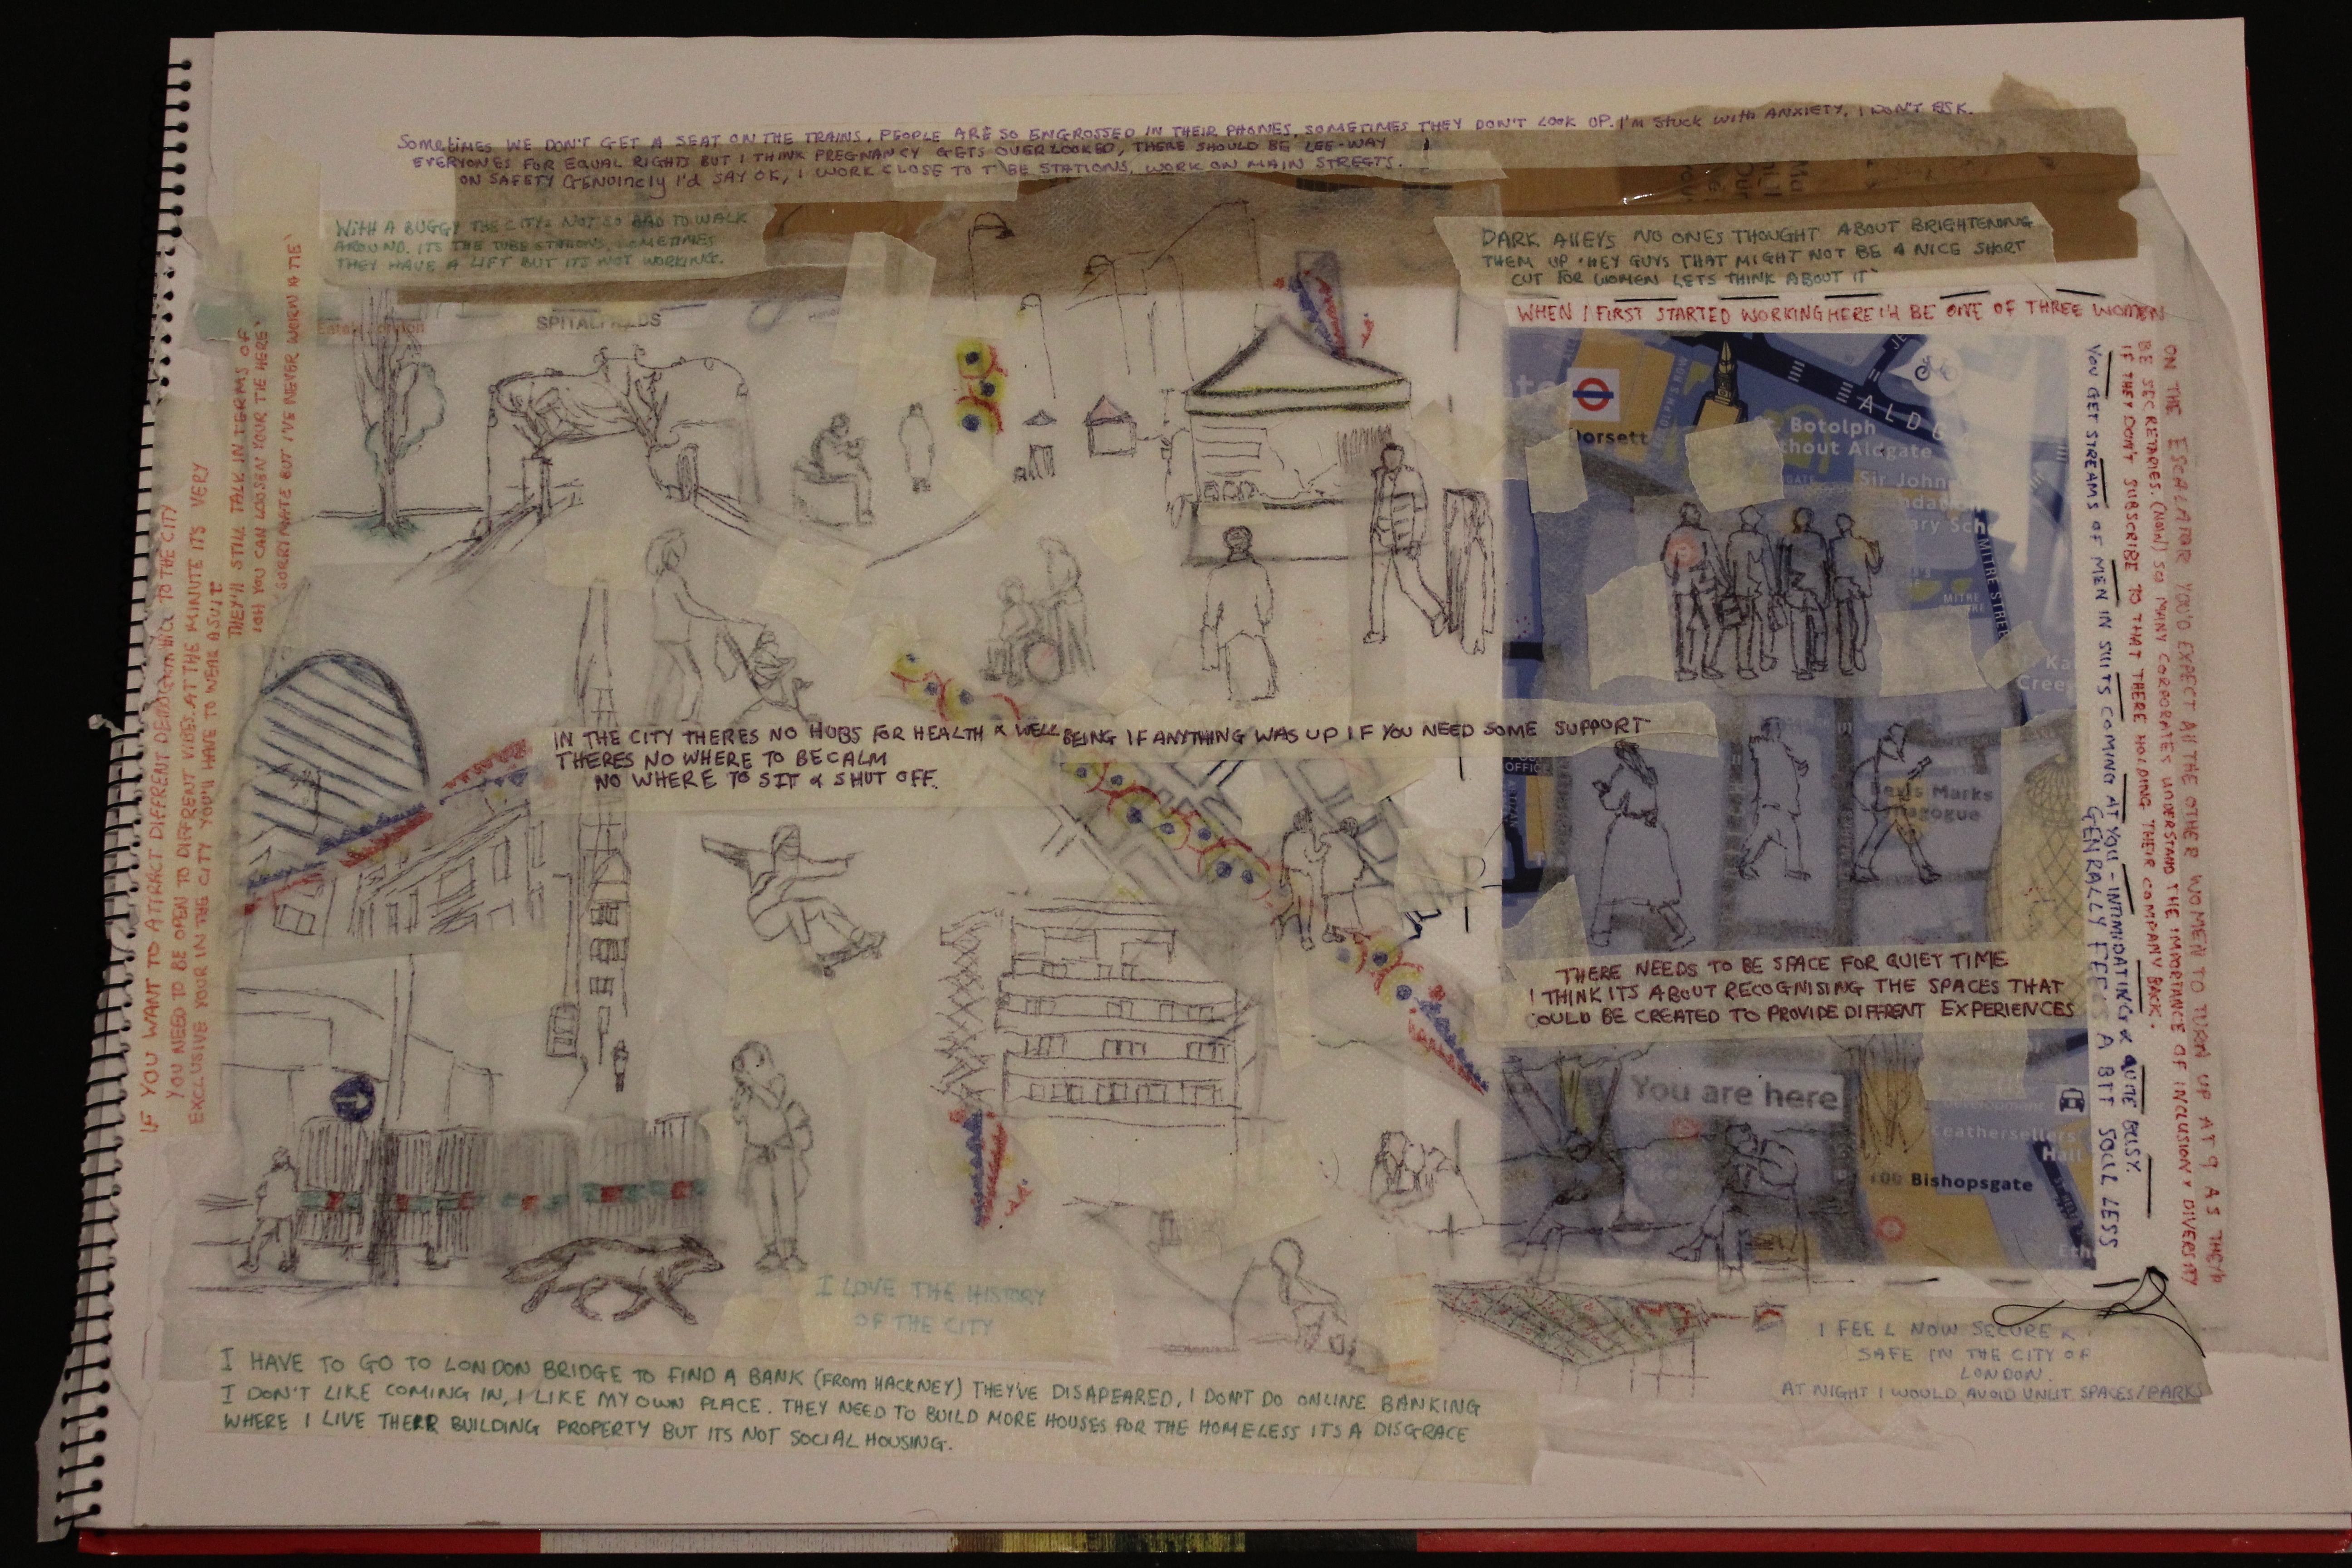 SOMETIMES WE DON'T GET A SEAT ON THE TRAINS, PEOPLE ARE SO ENGROSSED IN THEIR PHONES, SOMETIMES THEY DON'T LOOK UP. I'm STUCK WITH ANXIETY, I DON'T ASK.
EVERYONES FOR EQUAL RIGHTS BUT I THINK PREGNANCY GETS OVERLOOKED, THERE SHOULD BE LEE-WAY
ON SAFETY GENUINELY I'd SAY OK, I WORK CLOSE TO TUBE STATIONS, WORK ON MAIN STREETS.
WITH A BUGGY THE CITYS NOT SO BAD TO WALK
AROUND. ITS THE TUBE STATIONS, SOMETIMES
THEY HAVE A LIFT BUT ITS NOT WORKING.
DARK AllEYS NO ONES THOUGHT ABOUT BRIGHTENING
THEM UP 'HEY GUYS THAT MIGHT NOT BE A NICE SHORT
CUT FOR WOMEN LETS THINK ABOUT IT'
WHEN I FIRST STARTED WORKING HERE I'd BE ONE OF THREE WOMEN
ON THE ESCALATOR YOU'D EXPECT All THE OTHER WOMEN TO TURN UP AT 9 AS THEY'd
BE SECRETARIES. (NOW) SO MANY CORPORATES UNDERSTAND THE IMPORTANCE OF INCLUSION & DIVERSITY
IF THEY DON'T SUBSCRIBE TO THAT THERE HOLDING THEIR COMPANY BACK.
YOU GET STREAMS OF MEN IN SUITS COMING AT YOU - INTIMIDATING & QUITE BUSY.
GENRALLY FEELS A BIT SOUL LESS
IF YOU WANT TO ATTRACT DIFFRENT DEMOGRAPHICS TO THE CITY
YOU NEED TO BE OPEN TO DIFFERENT VIBES. AT THE MINUTE ITS VERY
EXCLUSIVE YOUR IN THE CITY YOU'll HAVE TO WEAR A SUIT
THEY'll STILL TALK IN TERMS OF
'OH YOU CAN LOOSEN YOUR TIE HERE'
'SORRY MATE BUT I'VE NEVER WORN A TIE'
SPITALFIELDS
Dorsett
ALDG
St. Botolph
without Aldgate
Sir John
MITRE
SQUARE
MITRE STREET
Bevis Marks
OFFICE
IN THE CITY THERES NO HUBS FOR HEALTH & WELL BEING IF ANYTHING WAS UP IF YOU NEED SOME SUPPORT
THERES NO WHERE TO BE CALM
NO WHERE TO SIT & SHUT OFF.
THERE NEEDS TO BE SPACE FOR QUIET TIME
I THINK ITS ABOUT RECOGNISING THE SPACES THAT
COULD BE CREATED TO PROVIDE DIFFRENT EXPERIENCES
You are here
Leathersellers'
Hall
100 Bishopsgate
I LOVE THE HISTORY
OF THE CITY
I FEEL NOW SECURE &
SAFE IN THE CITY OF
LONDON.
AT NIGHT I WOULD AVOID UNLIT SPACES/PARKS
I HAVE TO GO TO LONDON BRIDGE TO FIND A BANK (FROM HACKNEY) THEY'VE DISAPEARED, I DON'T DO ONLINE BANKING
I DON'T LIKE COMING IN, I LIKE MY OWN PLACE. THEY NEED TO BUILD MORE HOUSES FOR THE HOMELESS ITS A DISGRACE
WHERE I LIVE THERE BUILDING PROPERTY BUT ITS NOT SOCIAL HOUSING.